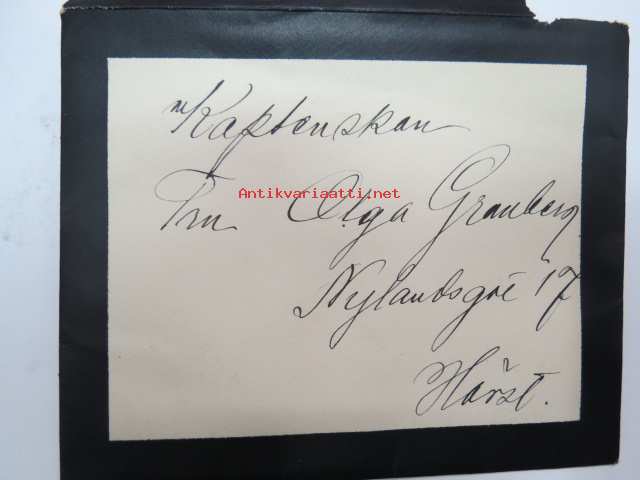 Kaptenskan
Antikvariaatti.net
Fru Olga Granberg
Nylandsg. 17
Härst.